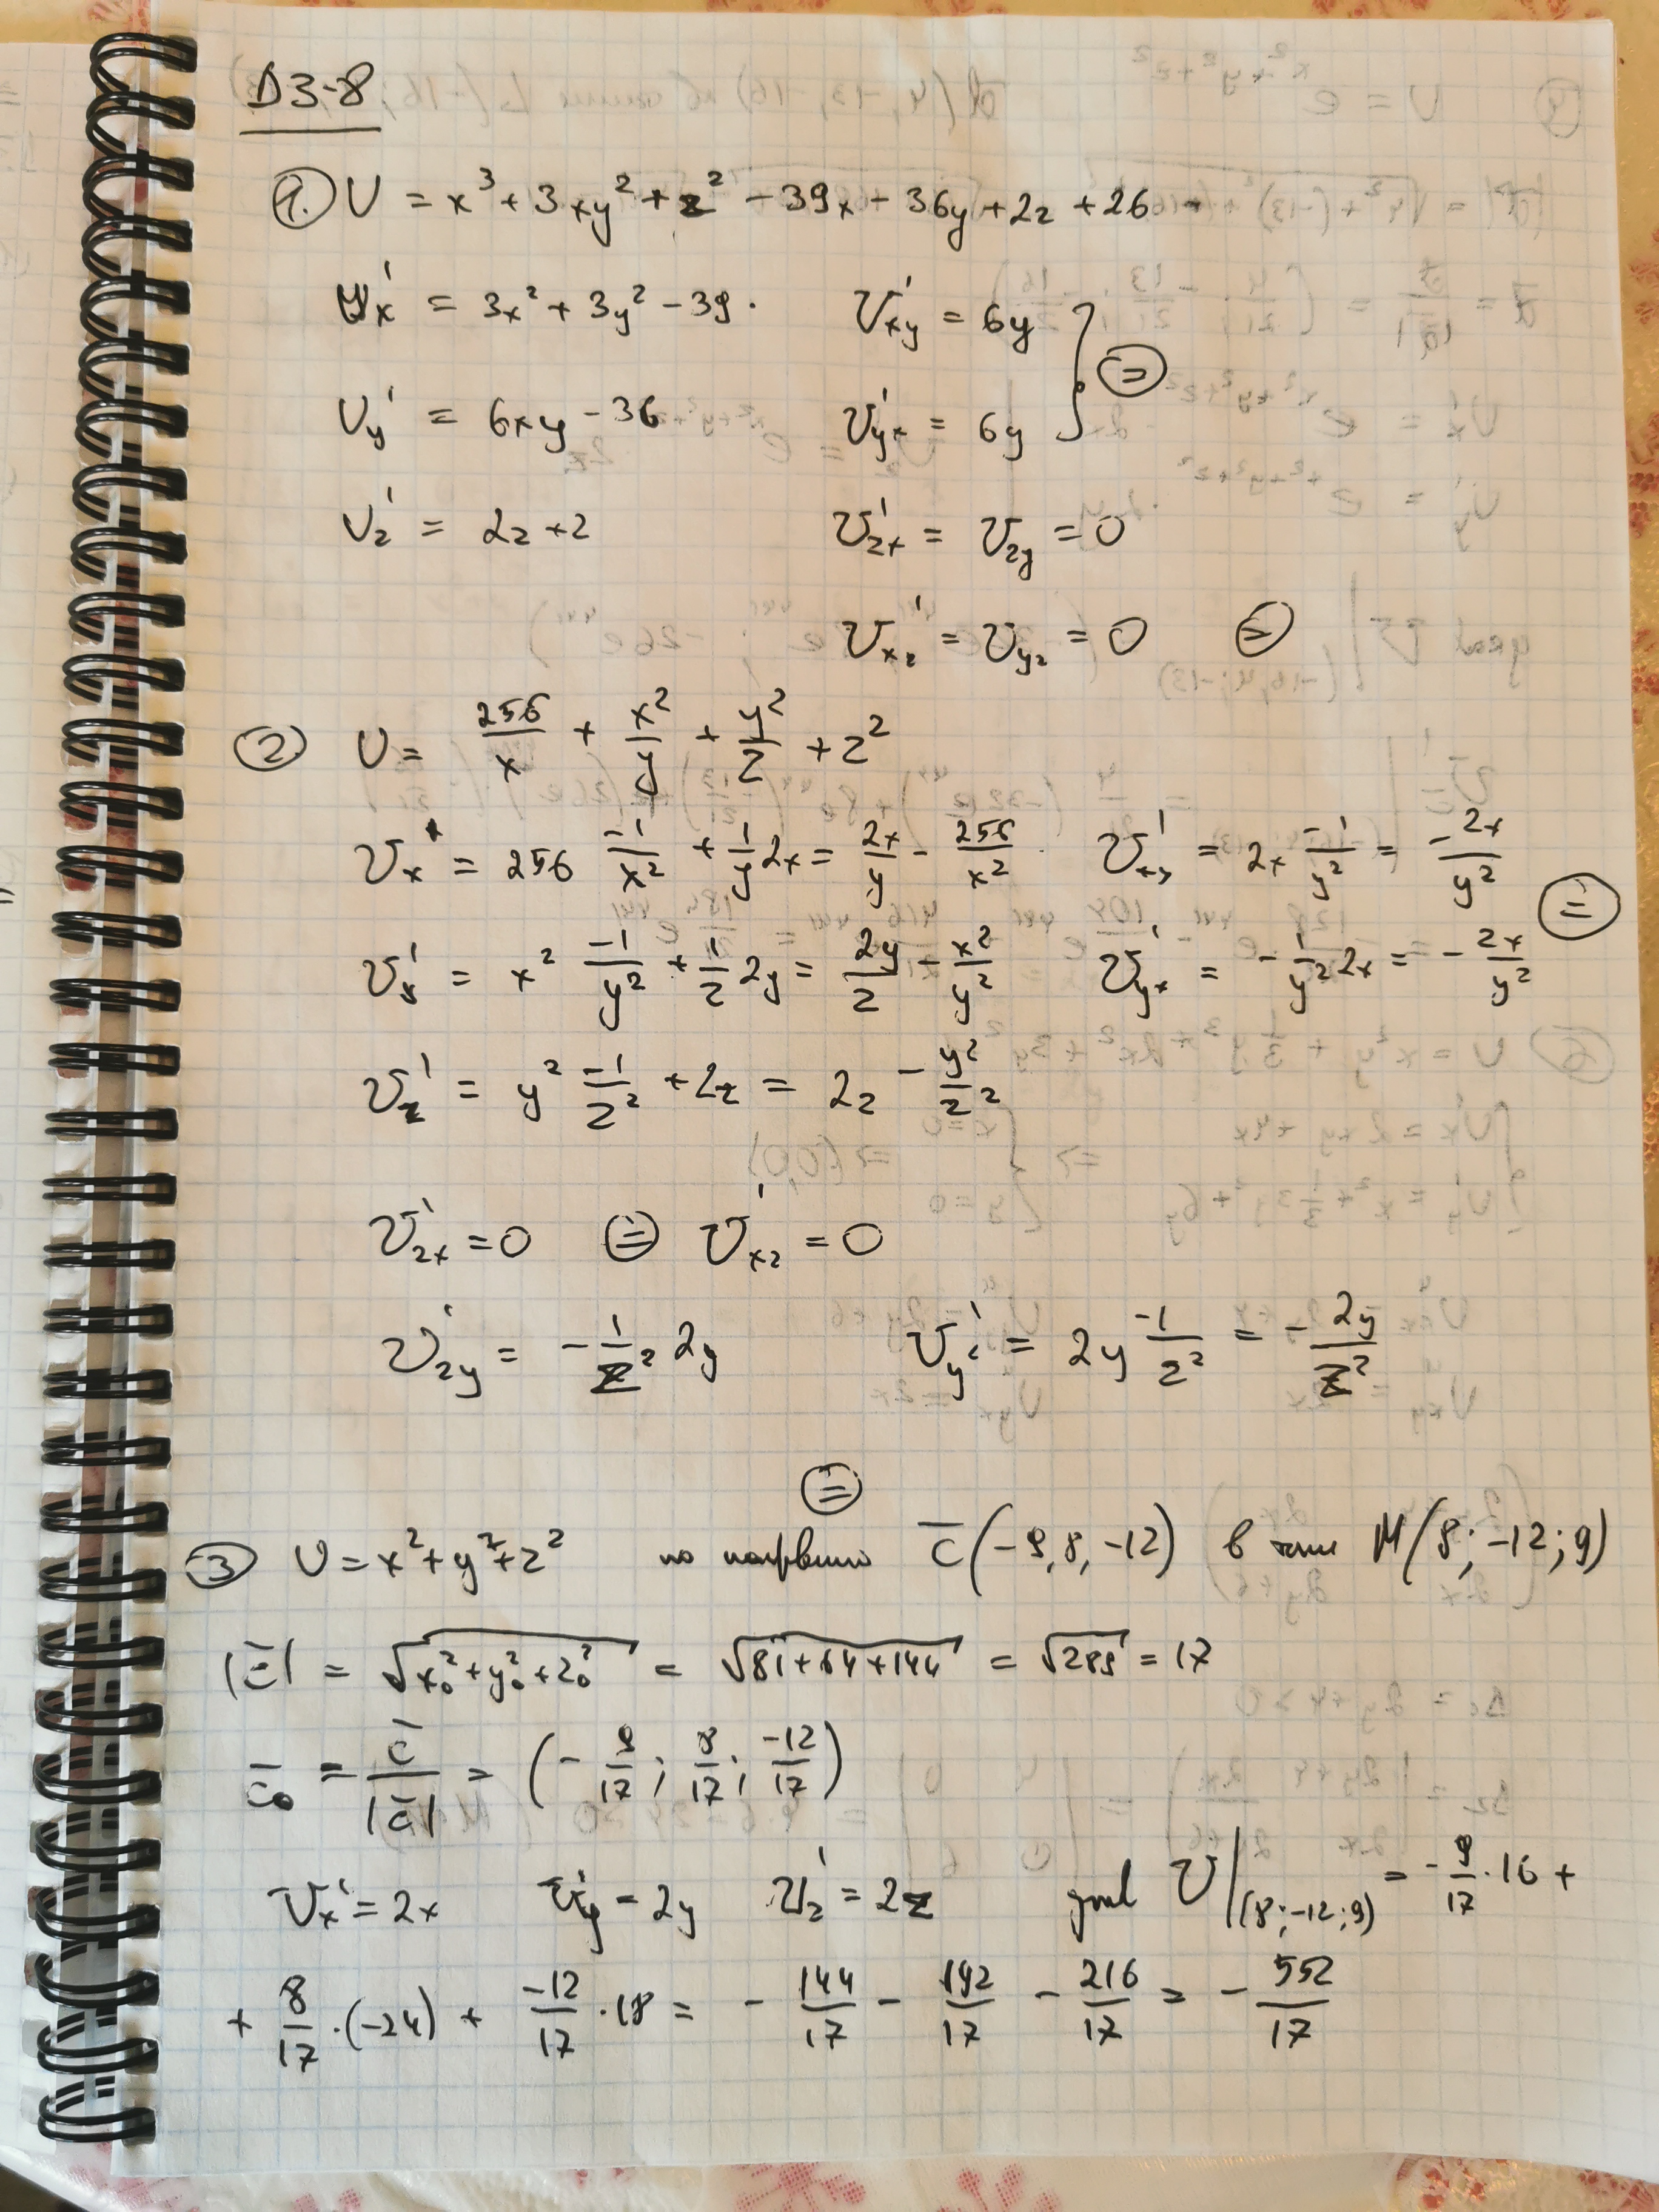 ДЗ-8
1. U = x³ + 3xy² + z² - 39x - 36y + 2z + 26
Ux' = 3x² + 3y² - 39. Uxy' = 6y
Uy' = 6xy - 36 Uyx' = 6y } =
Uz' = 2z + 2 Uzx' = Uzy = 0
Uxz' = Uyz = 0 =
2 U = 256/x + x²/y + y²/z + z²
Ux' = 256 -1/x² + 1/y 2x = 2x/y - 256/x² . Uxy' = 2x -1/y² = -2x/y²
Uy' = x² -1/y² + 1/z 2y = 2y/z - x²/y² Uyx' = -1/y² 2x = - 2x/y² =
Uz' = y² -1/z² + 2z = 2z - y²/z²
Uzx' = 0 = Uxz' = 0
Uzy' = -1/z² 2y Uyz' = 2y -1/z² = - 2y/z²
=
3 U = x² + y² + z² по c̄ (-9, 8, -12) в M (8; -12; 9)
|c̄| = √(x₀² + y₀² + z₀²) = √(81 + 64 + 144) = √289 = 17
c̄₀ = c̄/|c̄| = (- 9/17; 8/17; -12/17)
Ux' = 2x Uy' = 2y Uz' = 2z grad U|(8; -12; 9) = - 9/17 · 16 +
+ 8/17 · (-24) + -12/17 · 18 = - 144/17 - 192/17 - 216/17 = - 552/17